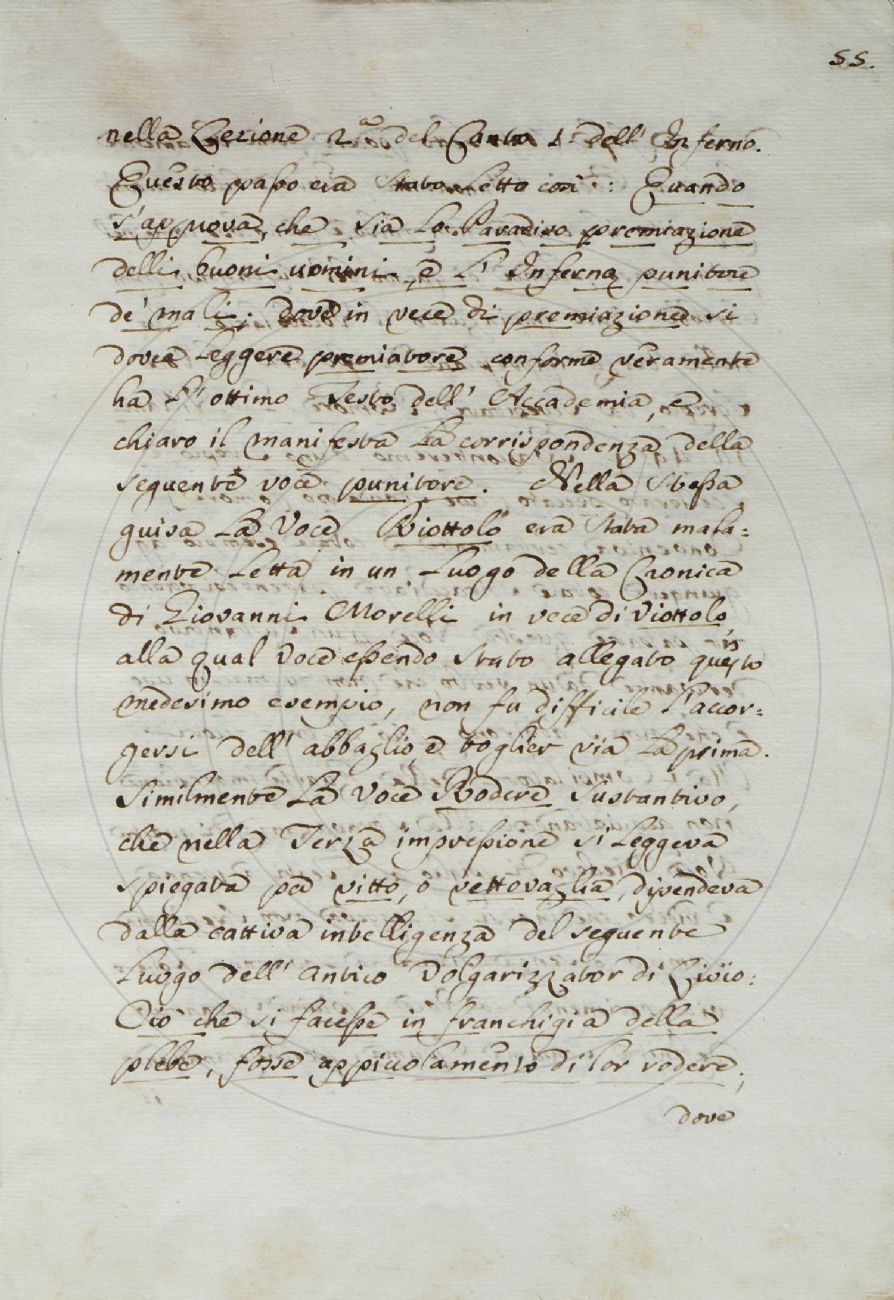 55.
nella Lezione 2.a del Canto 1.o dell' Inferno.
Questo passo era stato letto così: Quando
s'appruova, che sia lo Paradiso premiazione
delli buoni uomini, e l' Inferno punitore
de' mali; dove in vece di premiazione si
dovea leggere premiatore conforme veramente
ha l' ottimo Testo dell' Accademia, e
chiaro il manifesta la corrispondenza della
seguente voce punitore. Nella stessa
guisa la Voce Riottolo era stata mala=
mente letta in un luogo della Cronica
di Giovanni Morelli in vece di Viottolo,
alla qual Voce essendo stato allegato questo
medesimo esempio, non fu difficile l'accor=
gersi dell' abbaglio, e toglier via la prima.
Similmente la Voce Rodere Sustantivo,
che nella Terza impressione si leggeva
spiegata per vitto, o vettovaglia, dipendeva
dalla cattiva intelligenza del seguente
luogo dell' antico Volgarizzator di Livio:
Ciò che si facesse in franchigia della
plebe, fosse appicolamento di lor rodere;
dove